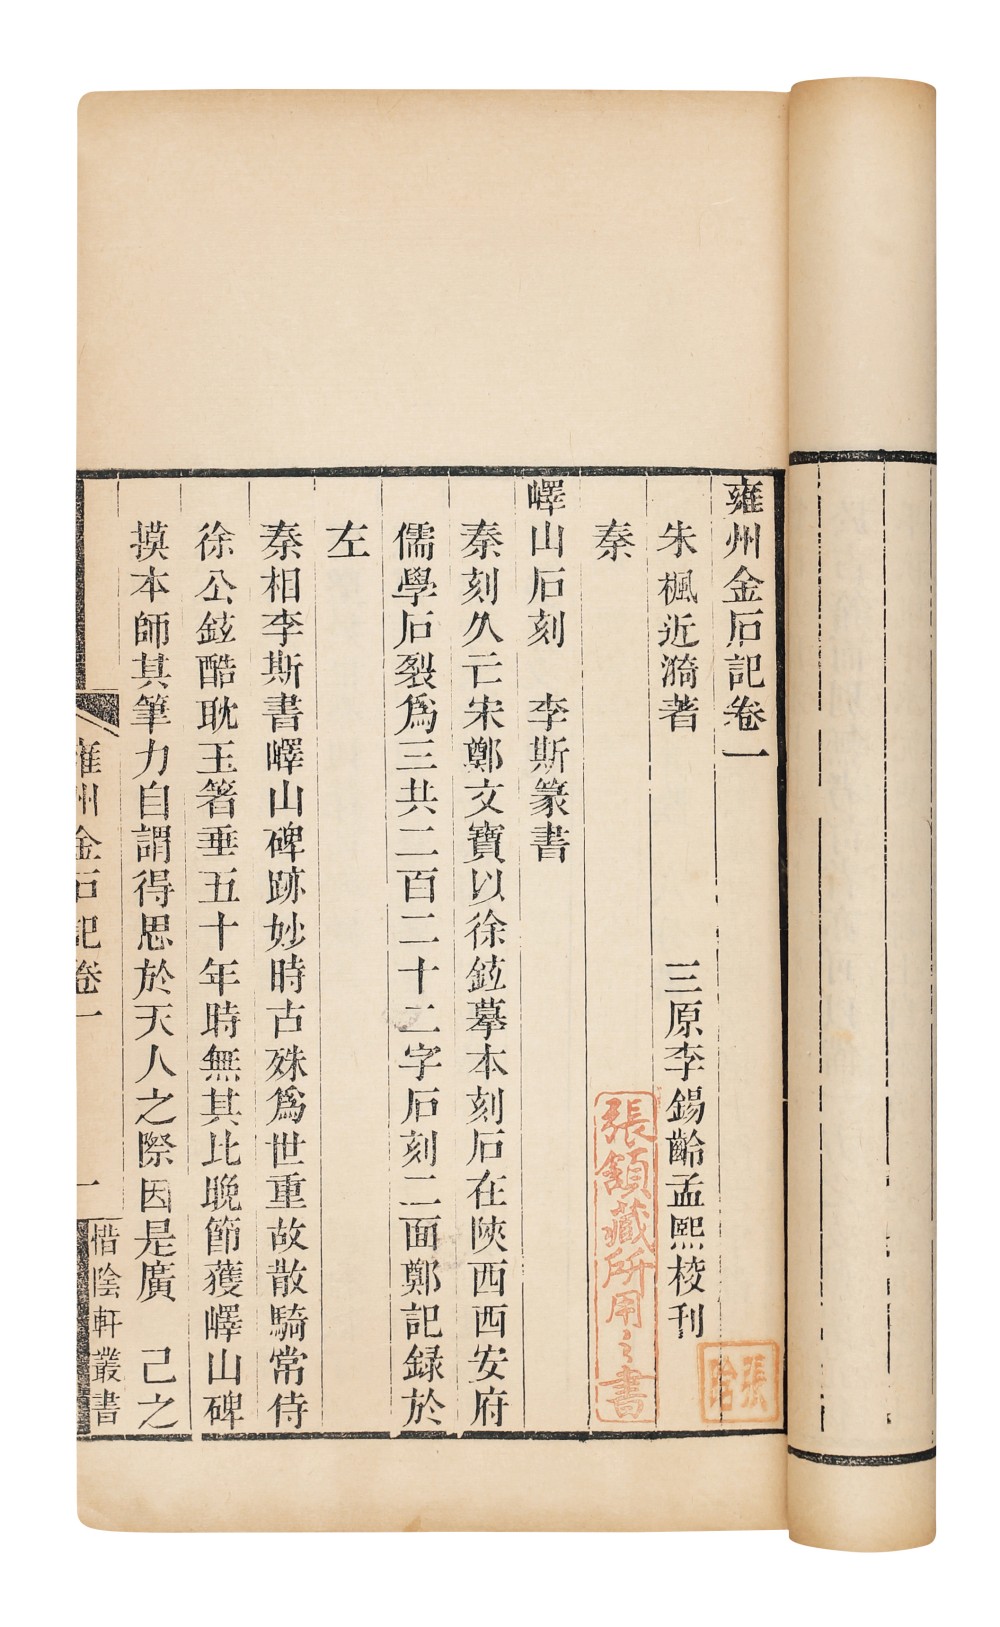 雍州金石記卷一
朱楓近漪著　三原李錫齡孟熙校刊
秦
嶧山石刻　李斯篆書
秦刻久亡宋鄭文寶以徐鉉摹本刻石在陝西西安府
儒學石裂為三共二百二十二字石刻二面鄭記録於
左
秦相李斯書嶧山碑跡妙時古殊為世重故散騎常侍
徐公鉉酷耽玉箸垂五十年時無其比晚節獲嶧山碑
摸本師其筆力自謂得思於天人之際因是廣　己之
雍州金石記卷一　一　惜陰軒叢書
張頟藏所用之書
張頟